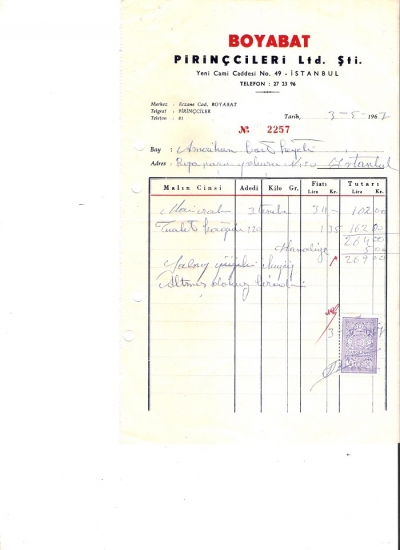 BOYABAT
PİRİNÇCİLERİ Ltd. Şti.
Yeni Cami Caddesi No. 49 - İSTANBUL
TELEFON : 27 23 96
Merkez : Eczane Cad. BOYABAT
Telgraf : PİRİNÇCİLER
Telefon : 61
Tarih, 3-5-1967
№ 2257
Bay : Amerikan Bort Heyeti
Adres : Rızapaşa yokuşu No: 50 İstanbul
Malın Cinsi Adedi Kilo Gr. Fiatı Lira Kr. Tutarı Lira Kr.
3 34 - 102 00
Tualet 120 1 35 162 00
264 00
Hamaliye 5 00
269 00
Yalnız ikiyüz
Altmış dokuz liradır